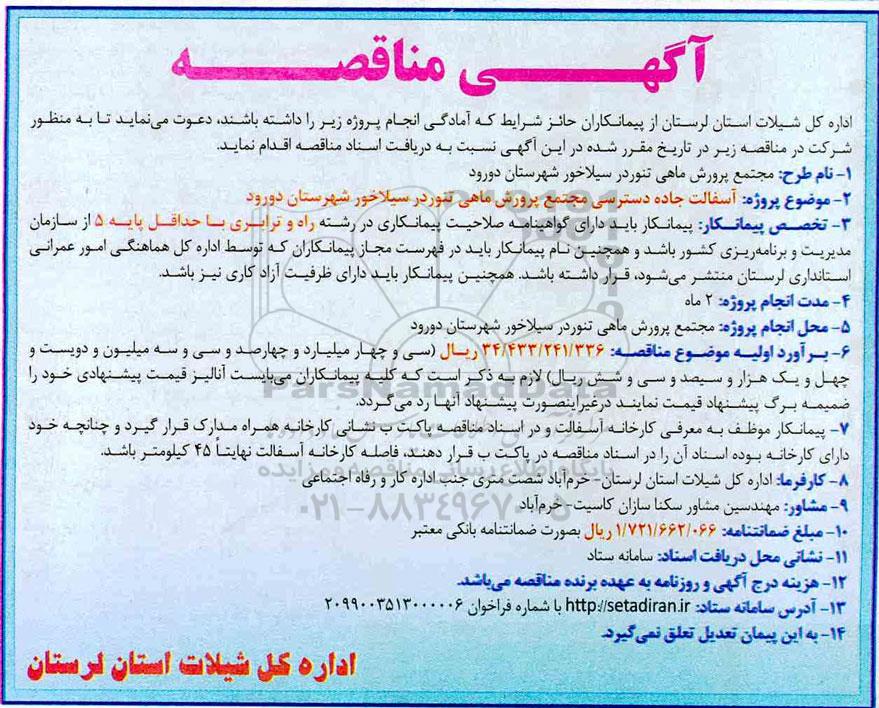 آگهی مناقصه
اداره کل شیلات استان لرستان از پیمانکاران حائز شرایط که آمادگی انجام پروژه زیر را داشته باشند، دعوت می‌نماید تا به منظور
شرکت در مناقصه زیر در تاریخ مقرر شده در این آگهی نسبت به دریافت اسناد مناقصه اقدام نماید.
۱- نام طرح: مجتمع پرورش ماهی تنوردر سیلاخور شهرستان دورود
۲- موضوع پروژه: آسفالت جاده دسترسی مجتمع پرورش ماهی تنوردر سیلاخور شهرستان دورود
۳- تخصص پیمانکار: پیمانکار باید دارای گواهینامه صلاحیت پیمانکاری در رشته راه و ترابری با حداقل پایه ۵ از سازمان
مدیریت و برنامه‌ریزی کشور باشد و همچنین نام پیمانکار باید در فهرست مجاز پیمانکاران که توسط اداره کل هماهنگی امور عمرانی
استانداری لرستان منتشر می‌شود، قرار داشته باشد. همچنین پیمانکار باید دارای ظرفیت آزاد کاری نیز باشد.
۴- مدت انجام پروژه: ۲ ماه
۵- محل انجام پروژه: مجتمع پرورش ماهی تنوردر سیلاخور شهرستان دورود
۶- برآورد اولیه موضوع مناقصه: ۳۴/۴۳۳/۲۴۱/۳۳۶ ریال (سی و چهار میلیارد و چهارصد و سی و سه میلیون و دویست و
چهل و یک هزار و سیصد و سی و شش ریال) لازم به ذکر است که کلیه پیمانکاران می‌بایست آنالیز قیمت پیشنهادی خود را
ضمیمه برگ پیشنهاد قیمت نمایند درغیراینصورت پیشنهاد آنها رد می‌گردد.
۷- پیمانکار موظف به معرفی کارخانه آسفالت و در اسناد مناقصه پاکت ب نشانی کارخانه همراه مدارک قرار گیرد و چنانچه خود
دارای کارخانه بوده اسناد آن را در اسناد مناقصه در پاکت ب قرار دهند، فاصله کارخانه آسفالت نهایتاً ۴۵ کیلومتر باشد.
۸- کارفرما: اداره کل شیلات استان لرستان- خرم‌آباد شصت متری جنب اداره کار و رفاه اجتماعی
۹- مشاور: مهندسین مشاور سکنا سازان کاسیت - خرم‌آباد
۱۰- مبلغ ضمانتنامه: ۱/۷۲۱/۶۶۲/۰۶۶ ریال بصورت ضمانتنامه بانکی معتبر
۱۱- نشانی محل دریافت اسناد: سامانه ستاد
۱۲- هزینه درج آگهی و روزنامه به عهده برنده مناقصه می‌باشد.
۱۳- آدرس سامانه ستاد: http://setadiran.ir با شماره فراخوان ۲۰۹۹۰۰۳۵۱۳۰۰۰۰۰۶
۱۴- به این پیمان تعدیل تعلق نمی‌گیرد.
اداره کل شیلات استان لرستان
ParsNamadData
پایگاه اطلاع رسانی مناقصه و مزایده
۰۲۱-۸۸۳۴۹۶۷۰-۵